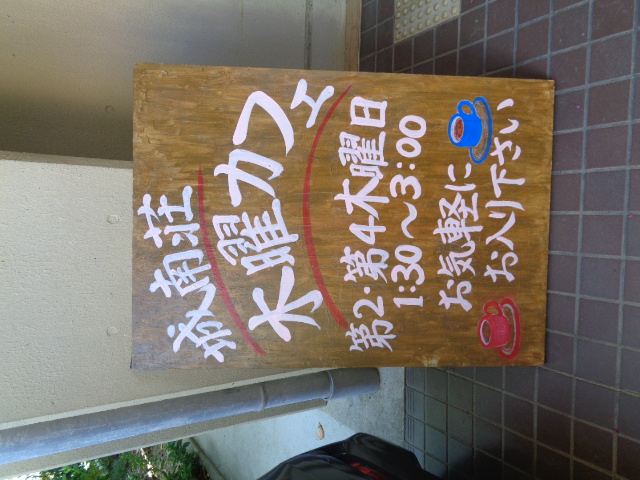 南荘
水曜カフェ
第2・第4木曜日
1:30～3:00
お気軽に
お入り下さい